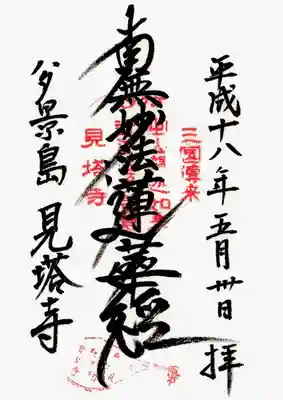 平成十八年五月卅日 拝
三國傳来
南無妙法蓮華経
見塔寺
多景島 見塔寺